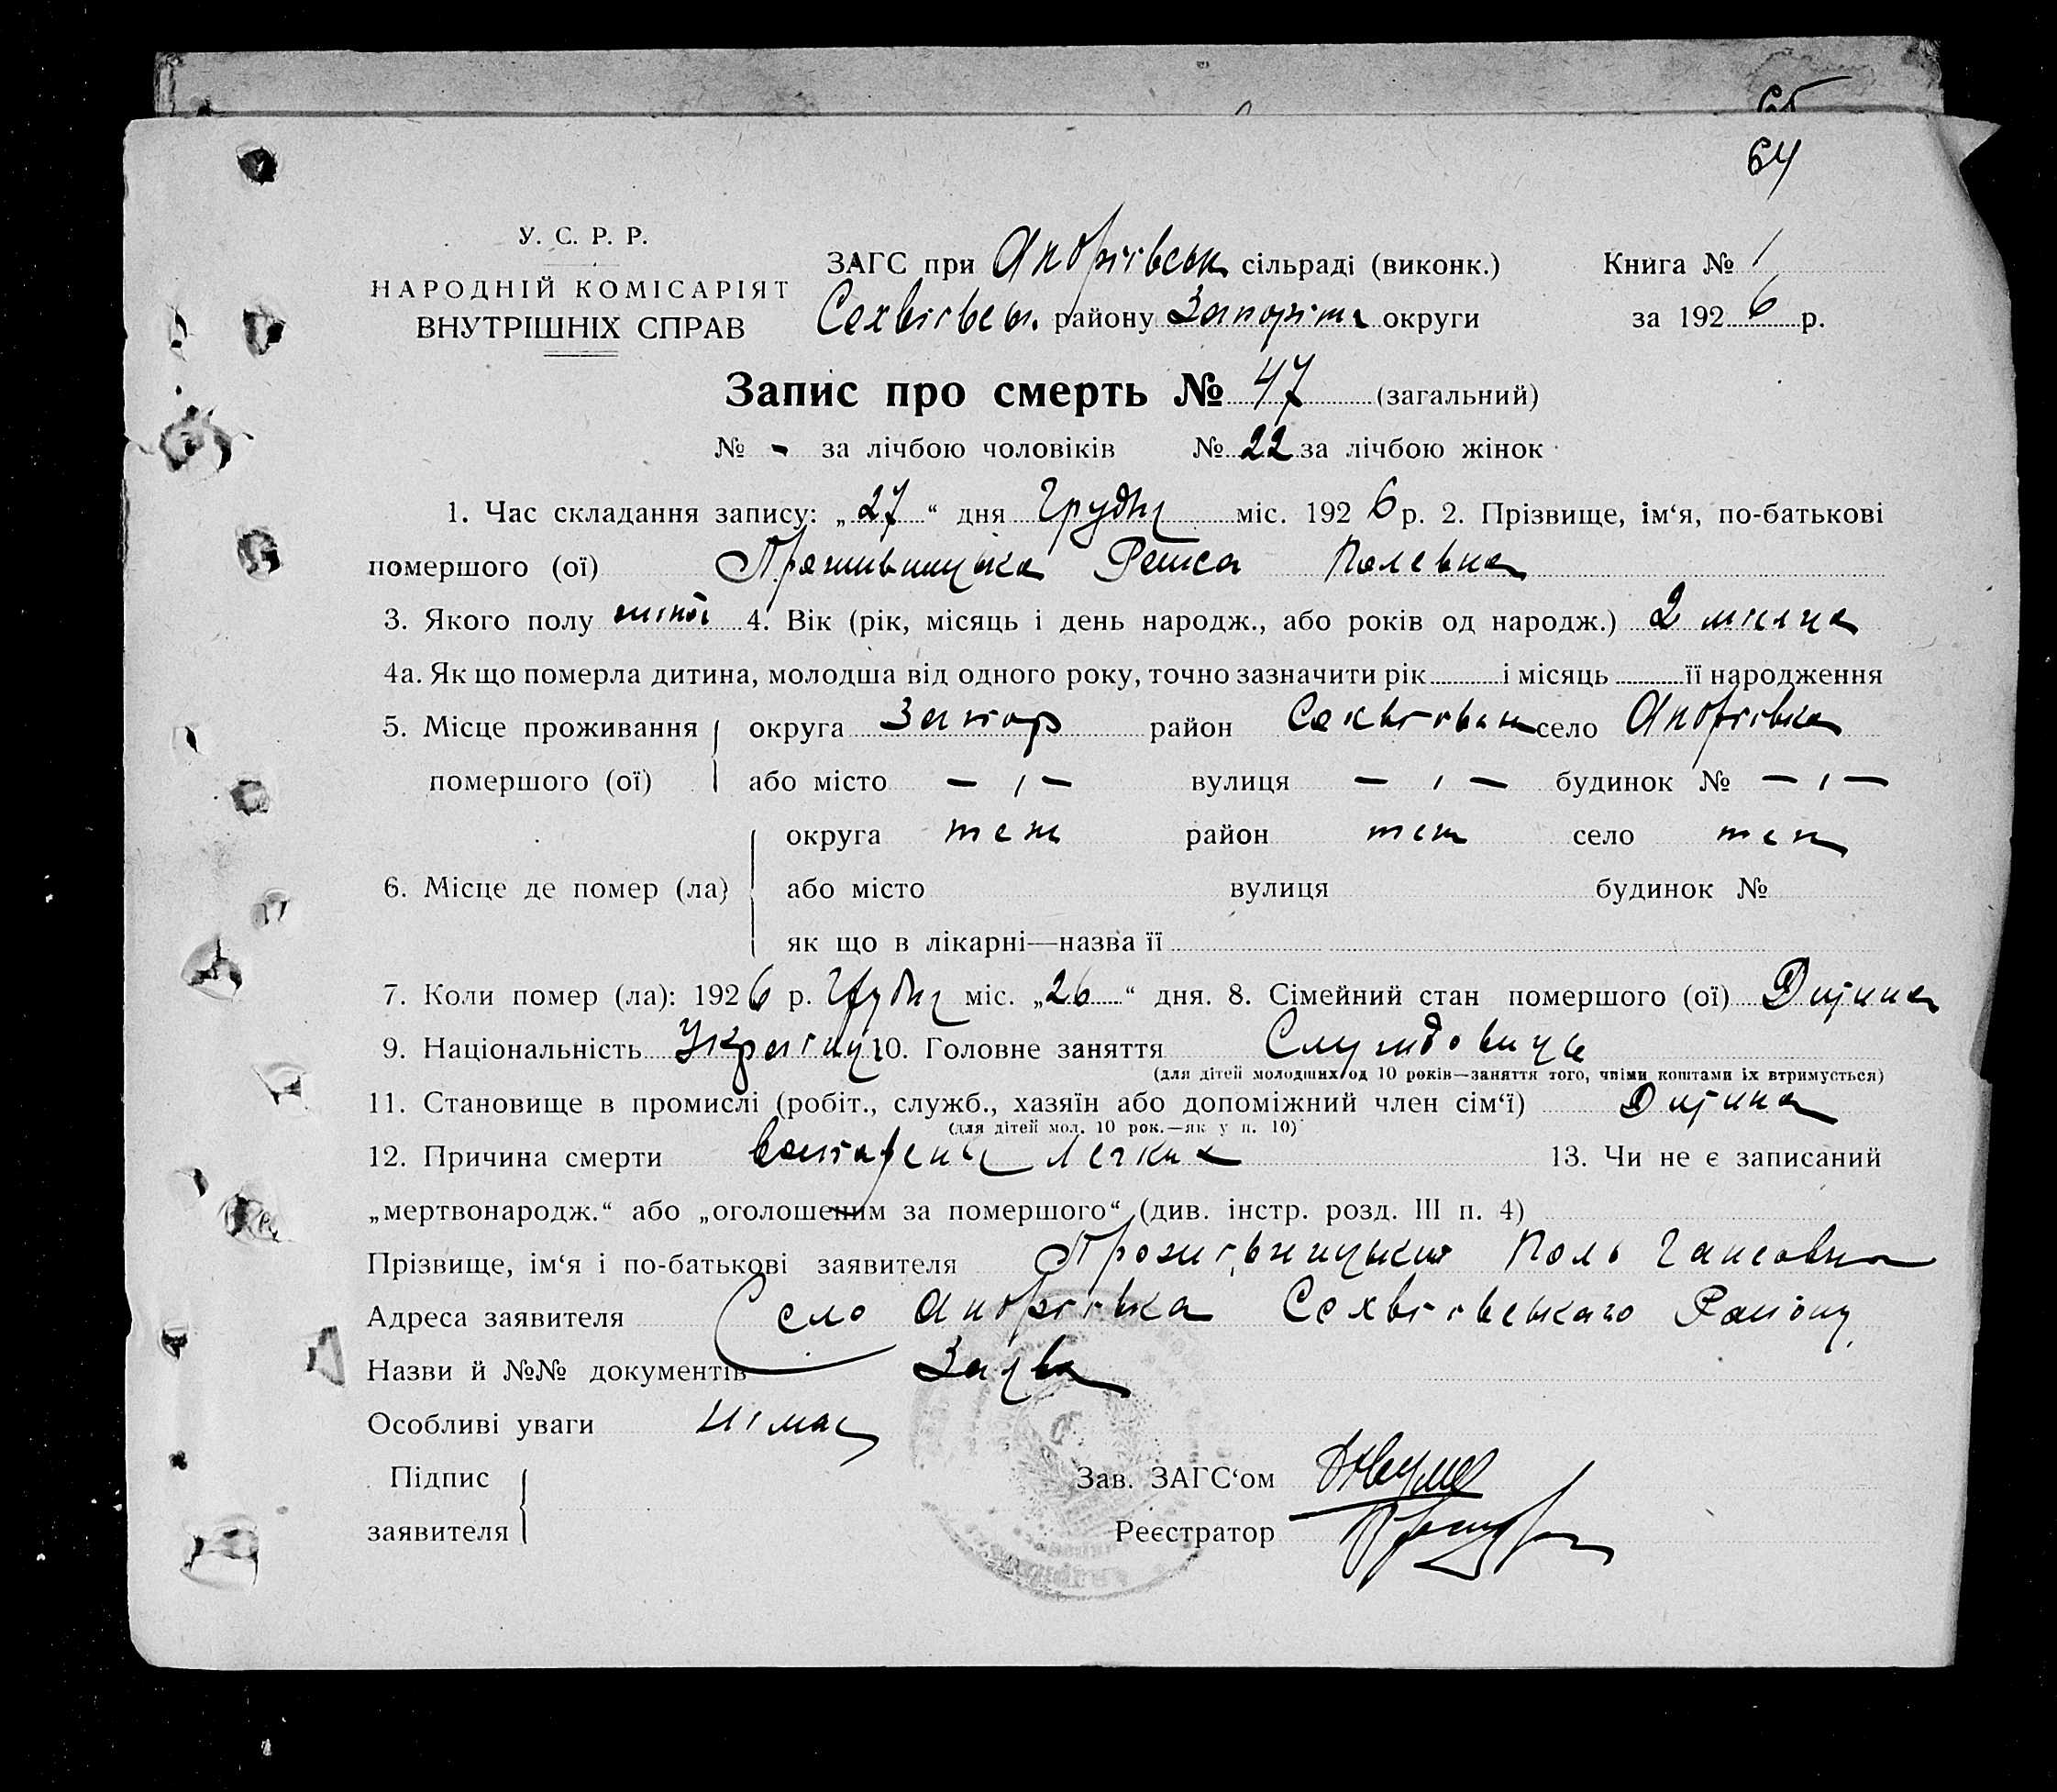 64
У. С. Р. Р.
НАРОДНІЙ КОМІСАРІЯТ
ВНУТРІШНІХ СПРАВ
ЗАГС при Андріївськ сільраді (виконк.) Книга № 1
району округи за 1926 р.
Запис про смерть № 47 (загальний)
№ - за лічбою чоловіків № 22 за лічбою жінок
1. Час складання запису: „27“ дня Грудня міс. 1926 р. 2. Прізвище, ім‘я, по-батькові
помершого (ої)
3. Якого полу жіноі 4. Вік (рік, місяць і день народж., або років од народж.) 2 місяця
4а. Як що померла дитина, молодша від одного року, точно зазначити рік і місяць її народження
5. Місце проживання округа Запор район село Андріівка
помершого (ої) або місто — „ — вулиця — „ — будинок № — „ —
округа теж район теж село теж
6. Місце де помер (ла) або місто вулиця будинок №
як що в лікарні—назва її
7. Коли помер (ла): 1926 р. Грудня міс. „26“ дня. 8. Сімейний стан помершого (ої) Дитина
9. Національність 10. Головне заняття
(для дітей молодших од 10 років—заняття того, чиїми коштами їх втримується)
11. Становище в промислі (робіт., служб., хазяїн або допоміжний член сім‘ї) Дитина
(для дітей мол. 10 рок.—як у п. 10)
12. Причина смерти легких 13. Чи не є записаний
„мертвонародж.“ або „оголошеним за помершого“ (див. інстр. розд. III п. 4)
Прізвище, ім‘я і по-батькові заявителя
Адреса заявителя Село Андріівка Району
Назви й №№ документів Заява
Особливі уваги Немає
Підпис Зав. ЗАГС‘ом
заявителя Реєстратор